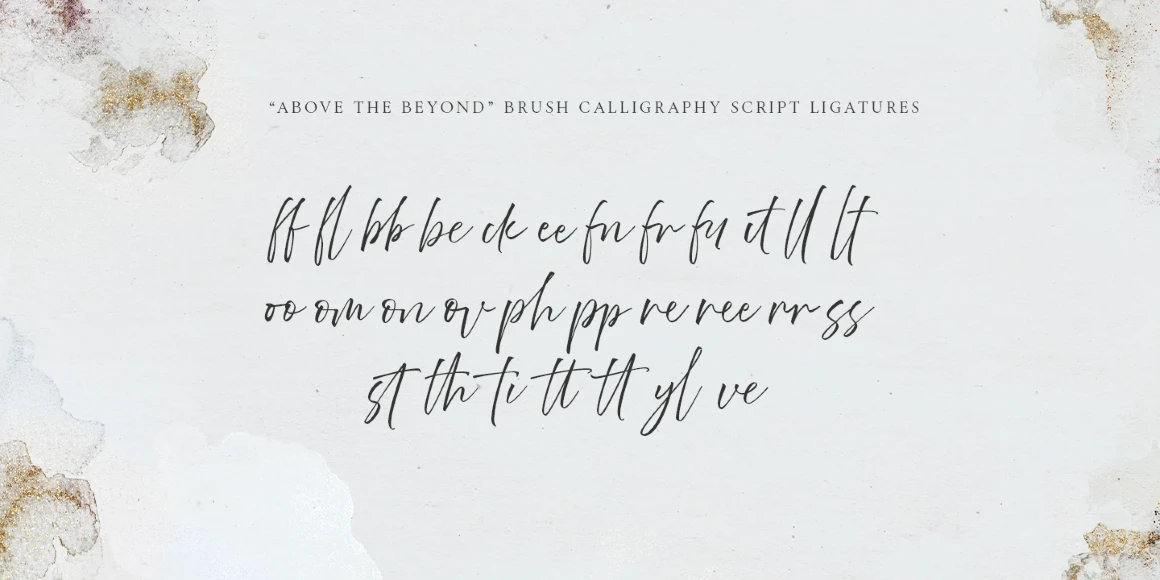 “ABOVE THE BEYOND” BRUSH CALLIGRAPHY SCRIPT LIGATURES
ff fl bb be ck ee fn fr fu it ll lt
oo om on ov ph pp re ree rr ss
st th ti tt tt yl ve